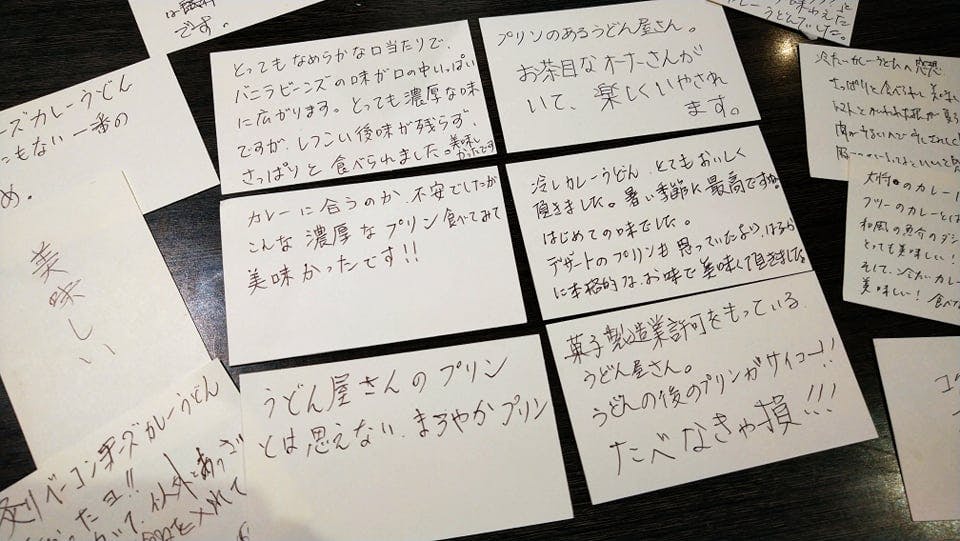 は最高
です。
ーズカレーうどん
こもない一番の
め。
美味しい
とってもなめらかな口当たりで、
バニラビーンズの味が口の中いっぱい
に広がります。とっても濃厚な味
ですが、しつこい後味が残らず、
さっぱりと食べられました。美味し
かったです
プリンのあるうどん屋さん。
お茶目なオーナーさんが
いて、楽しくいやされ
ます。
カレーに合うのか不安でしたが
こんな濃厚なプリン食べてみて
美味かったです!!
冷しカレーうどん、とてもおいしく
頂きました。暑い季節に最高ですね
はじめての味でした。
デザートのプリンも思っていたより、はるか
に本格的な、お味で美味しく頂きました
うどん屋さんのプリン
とは思えない、まろやかプリン
菓子製造業許可をもっている
うどん屋さん。
うどんの後のプリンがサイコー!!
たべなきゃ損!!!
ベーコンチーズカレーうどん
ったヨ!!
味わえた
うどんでした。
冷たいカレーうどんへ感想
さっぱりと食べられて美味し
のカレーは
和風の魚介のダシ
とっても美味しい!
そして、冷たいカレー
美味しい!食べ